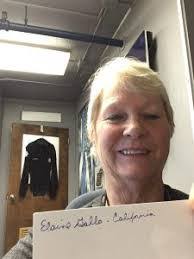 Elaine Gallo - California